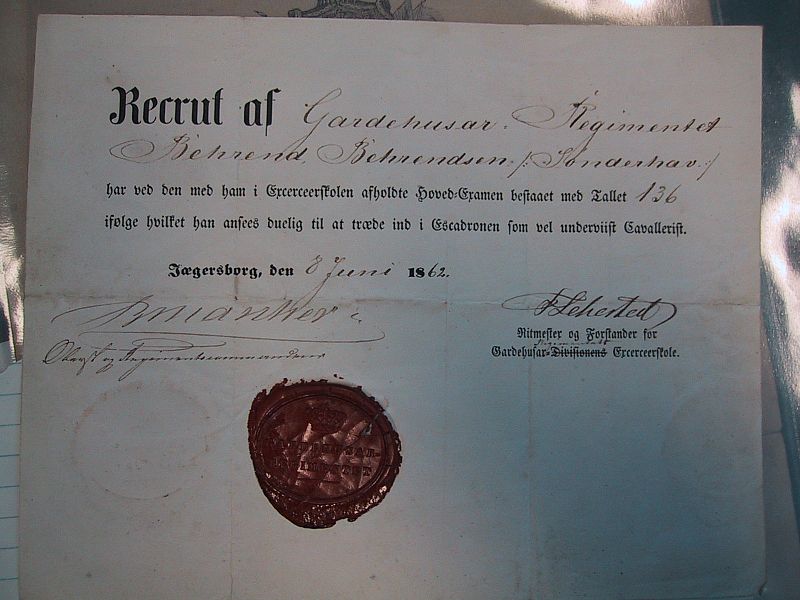 Recrut af Gardehusar-Regimentet
Behrend Behrendsen /: Sönderhav :/
har ved den med ham i Excerceerskolen afholdte Hoved-Examen bestaaet med Tallet 136
ifølge hvilket han ansees duelig til at træde ind i Escadronen som vel underviist Cavallerist.
Jægersborg, den 8 Juni 1862.
Oberst og Regimentscommandeur
Ritmester og Forstander for
Regimentets
Gardehusar-Divisionens Excerceerskole.
GARDEHUSAR-
REGIMENTET